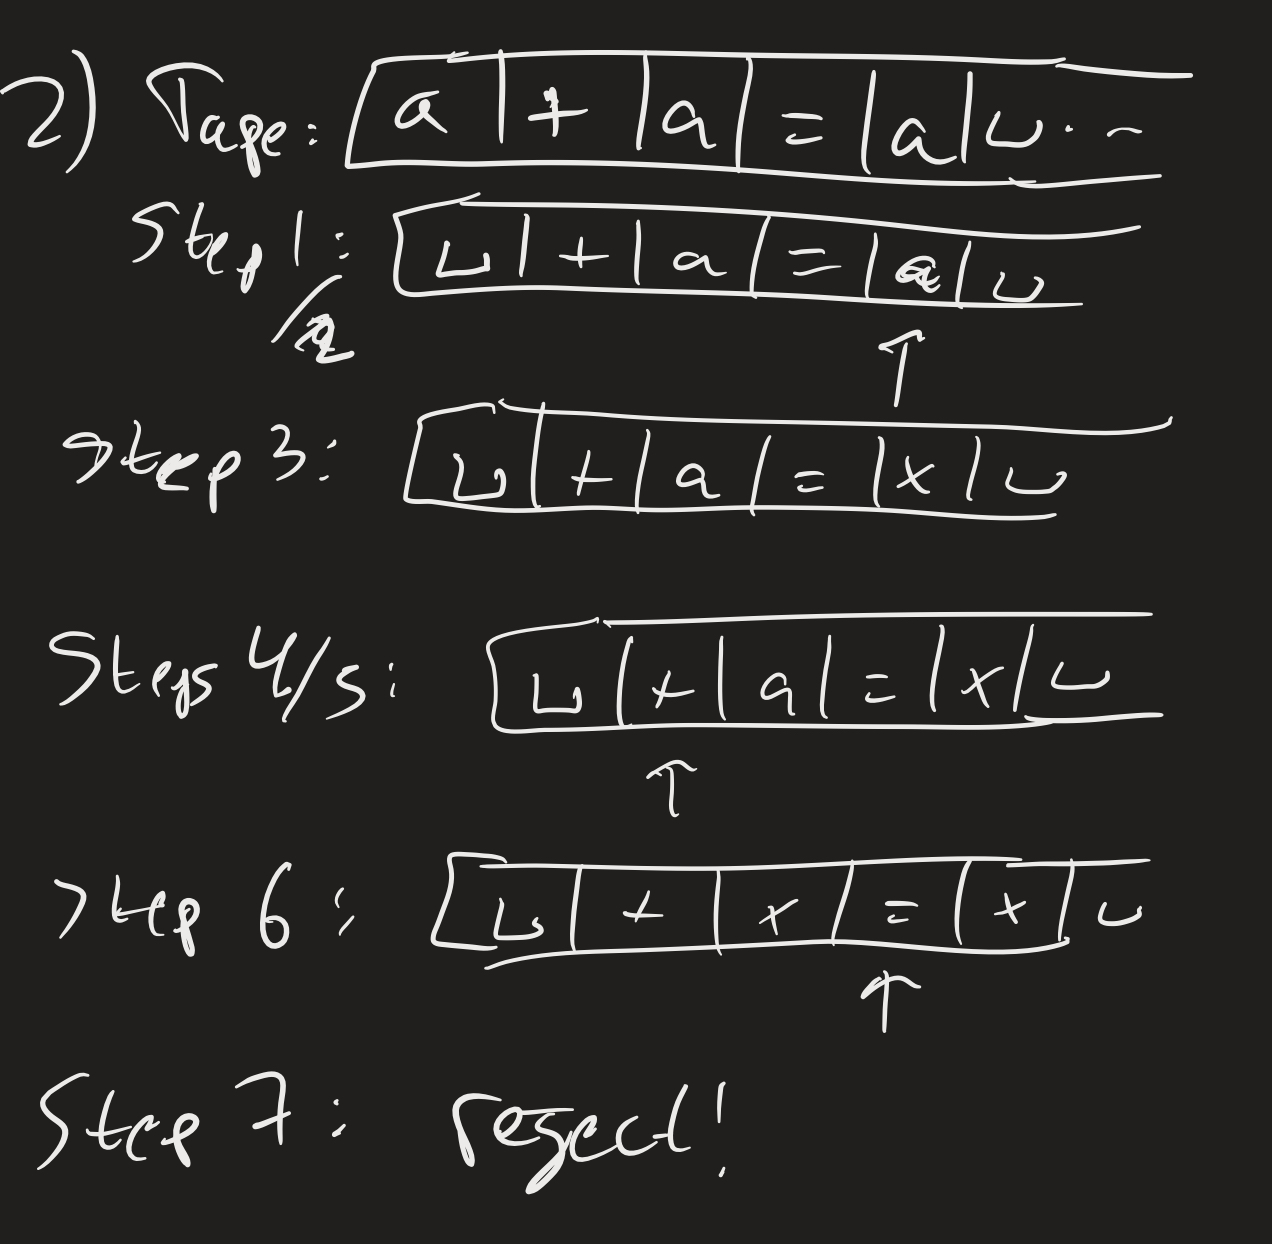 2) Tape: a | + | a | = | a | ⊔ . . -
Step 1: ⊔ | + | a | = | a | ⊔
/2 ↑
Step 3: ⊔ | + | a | = | x | ⊔
Steps 4/5: ⊔ | + | a | = | x | ⊔
↑
Step 6: ⊔ | + | x | = | x | ⊔
↑
Step 7: reject!